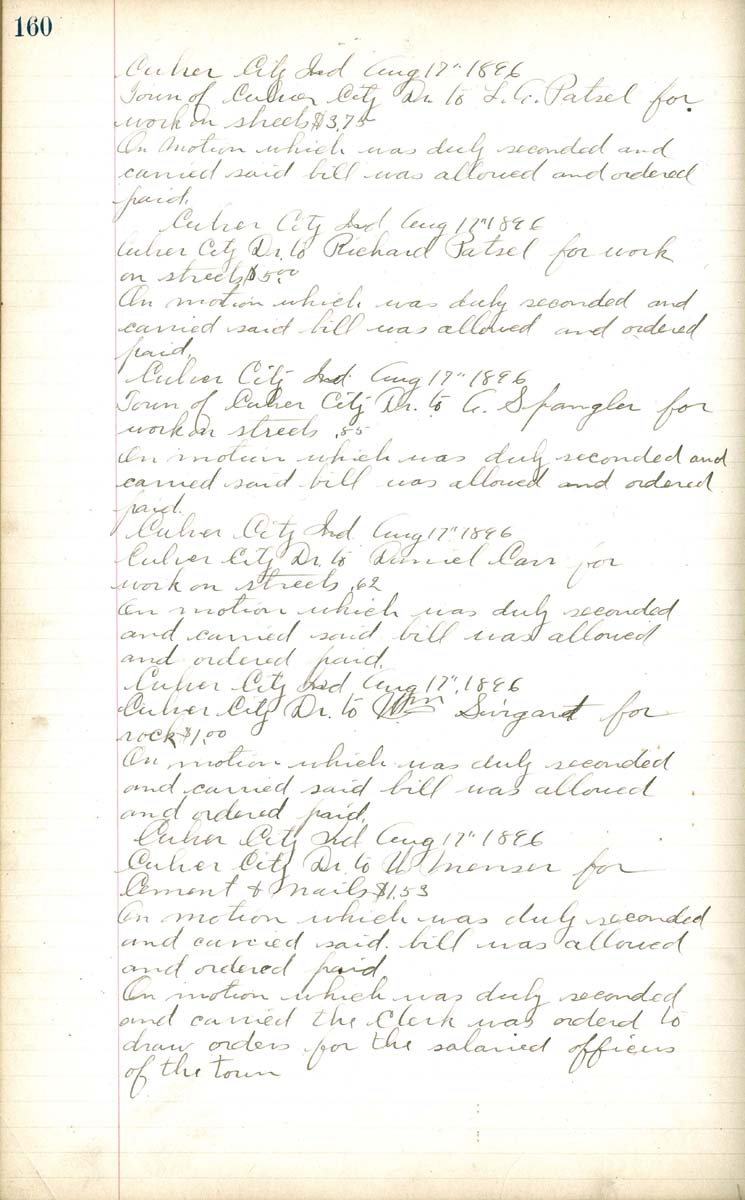 160
Culver City Ind Aug 17" 1896
Town of Culver City Dr. to L. A. Patsel for
work on streets $3.75
On Motion which was duly seconded and
carried said bill was allowed and ordered
paid.
Culver City Ind Aug 17" 1896
Culver City Dr. to Richard Patsel for work
on streets $5.00
On motion which was duly seconded and
carried said bill was allowed and ordered
paid.
Culver City Ind. Aug 17" 1896
Town of Culver City Dr. to A. Spangler for
work on streets .85
On motion which was duly seconded and
carried said bill was allowed and ordered
paid.
Culver City Ind Aug 17" 1896
Culver City Dr. to Daniel Carr for
work on streets .62
On motion which was duly seconded
and carried said bill was allowed
and ordered paid.
Culver City Ind Aug 17", 1896
Culver City Dr. to Wm for
rock $1.00
On motion which was duly seconded
and carried said bill was allowed
and ordered paid.
Culver City Ind Aug 17" 1896
Culver City Dr. to Menser for
Cement & nails $1.53
On motion which was duly seconded
and carried said bill was allowed
and ordered paid
On motion which was duly seconded
and carried the Clerk was orderd to
draw orders for the salaried officers
of the town